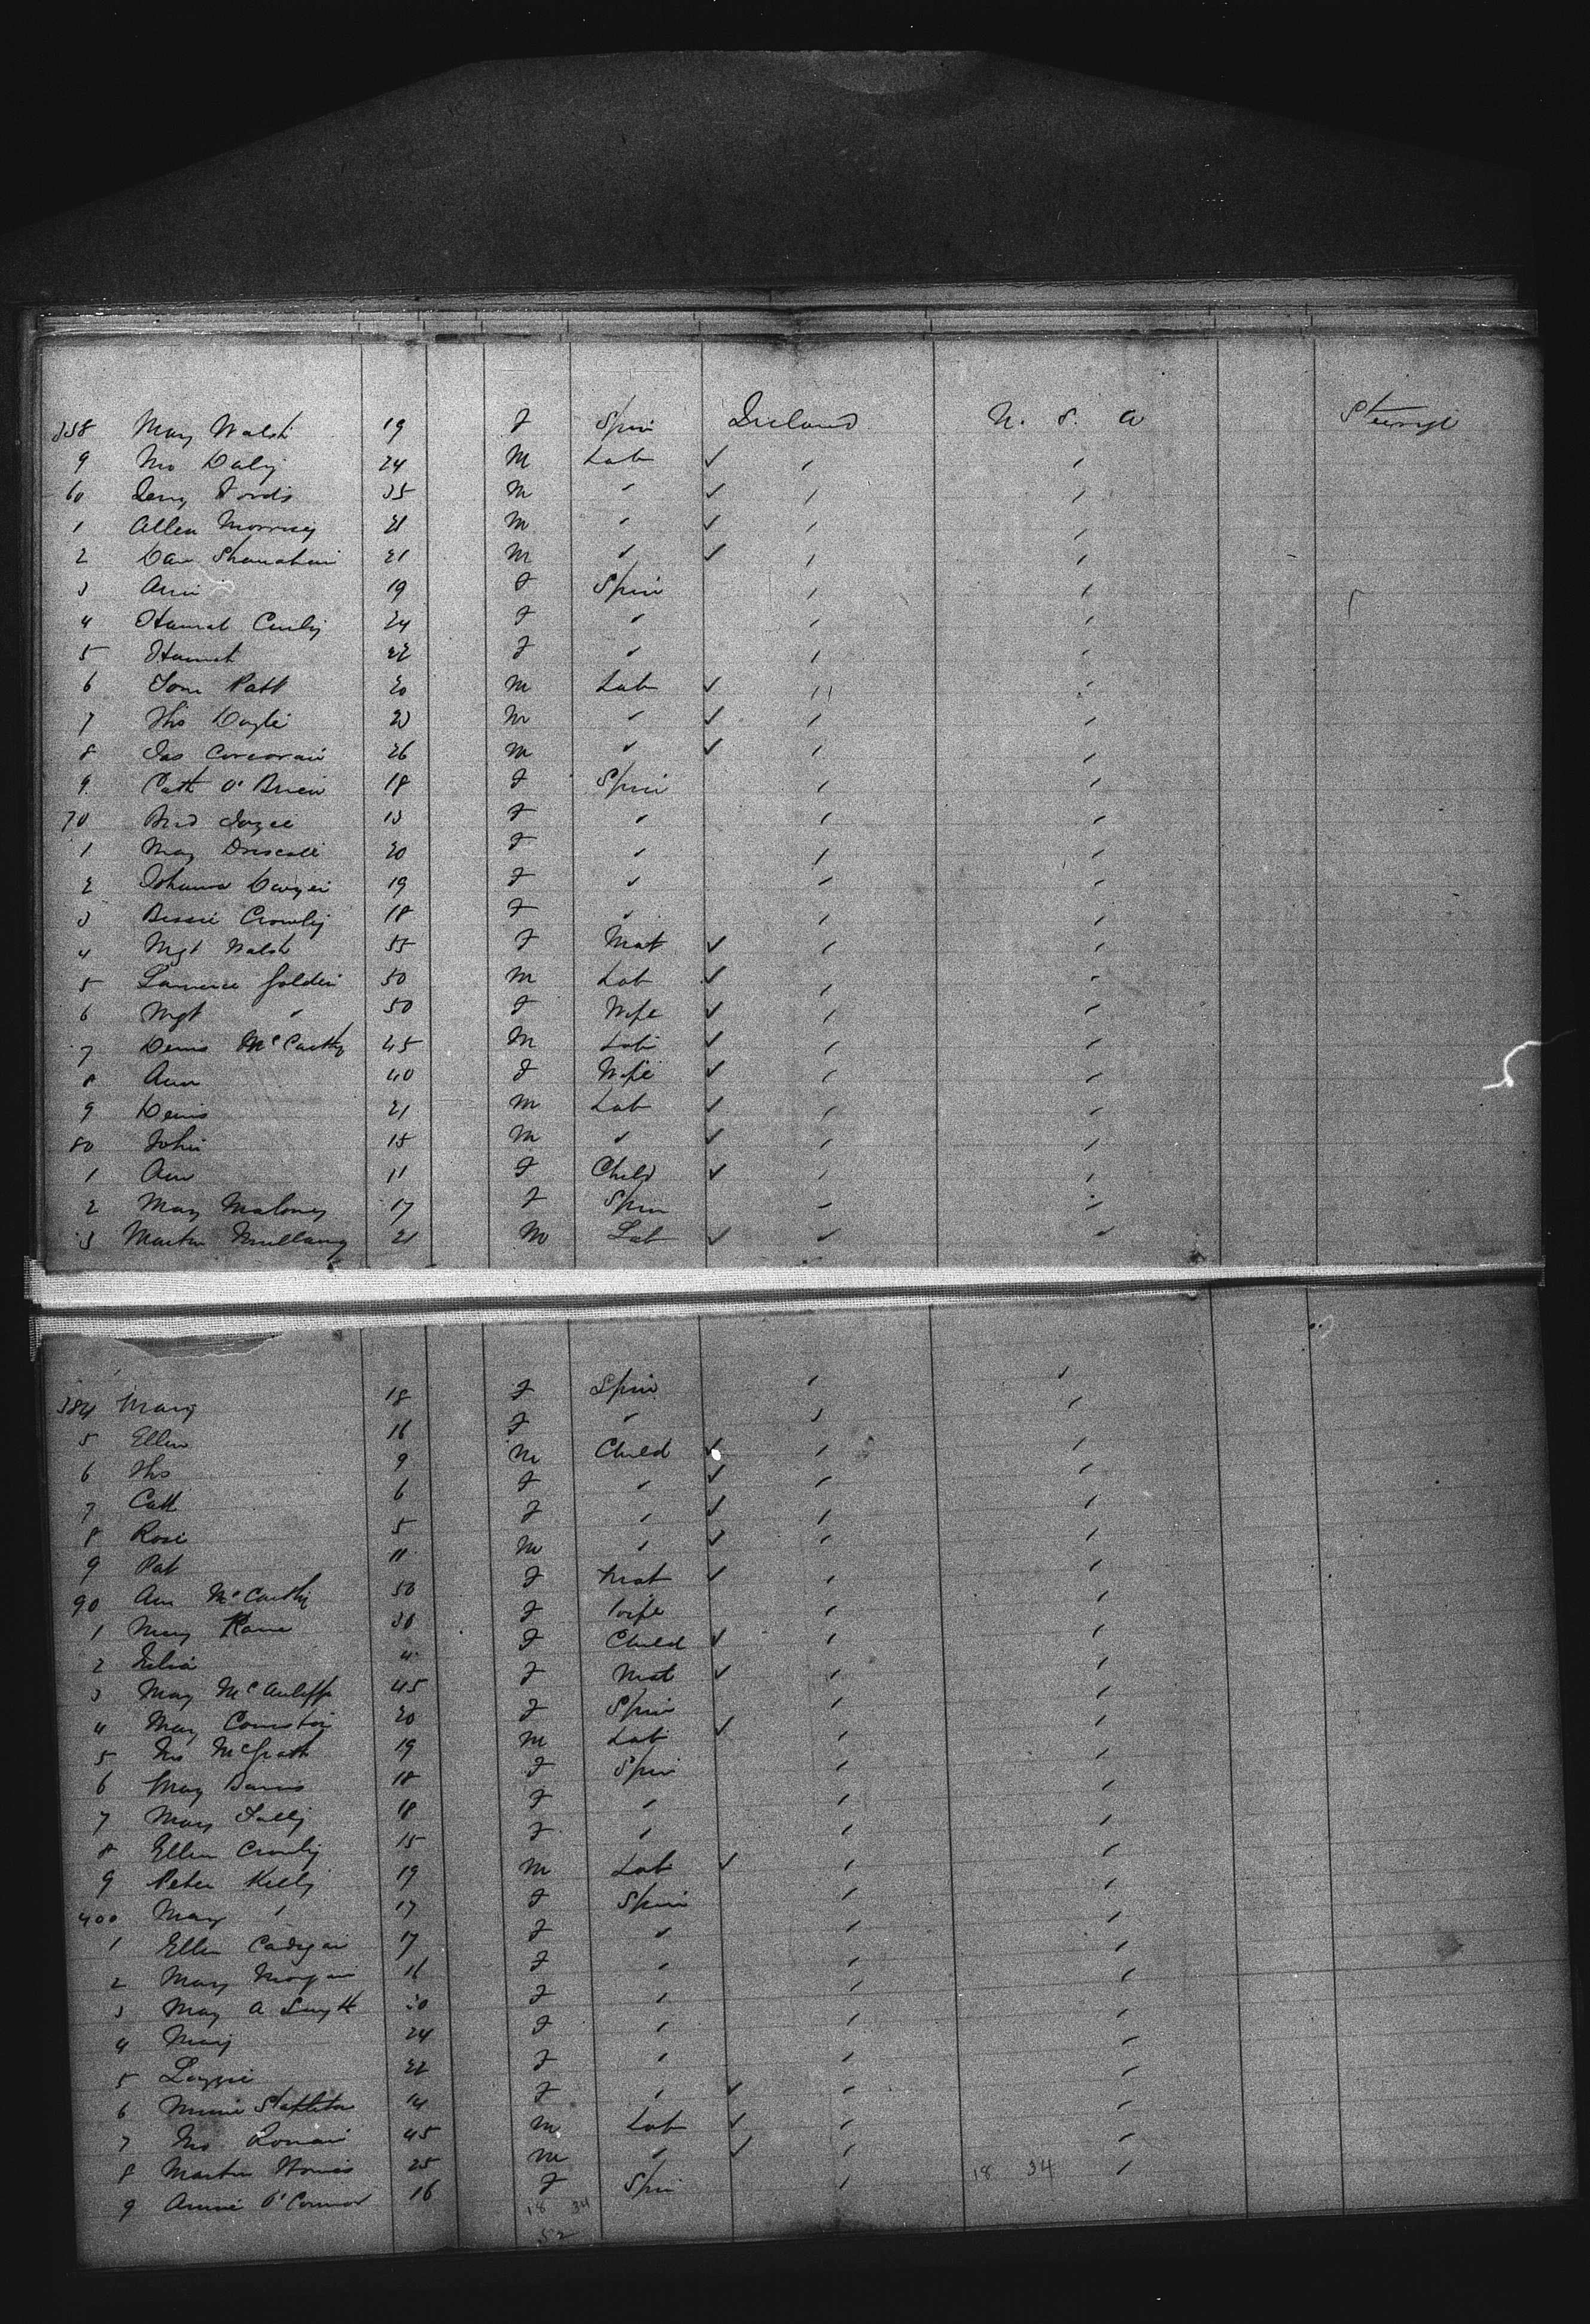 358 Mary Walsh 19 F Spin Ireland U. S. A Steerage
9 Jno Daly 24 M Lab ✓ "
60 Jerry 35 M " ✓ "
1 Allen Morrisey 21 M " ✓ "
2 Dan Shanahan 21 M " ✓ "
3 Ann 19 F Spin "
4 Hannah 24 F " "
5 Hannah 22 F " "
6 Tom Patt 20 M Lab ✓ "
7 Tho Doyle M " ✓ "
8 Jas Corcoran 26 M " ✓ "
9 Cath O'Brien 18 F Spin "
70 Brid Joyce F " "
1 Mary Driscoll 20 F " "
2 Johanna Dwyer 19 F " "
3 Bessie Crowley 18 F " "
4 Mgt Walsh 55 F Mat ✓ "
5 Lawrence Golden 50 M Lab ✓ "
6 Mgt " 50 F Wife ✓ "
7 Denis McCarthy 45 M Lab ✓ "
8 Ann 40 F Wife ✓ "
9 Denis 21 M Lab ✓ "
80 John 15 M " ✓ "
1 Ann 11 F Child ✓ "
2 Mary Maloney 17 F Spin "
3 Martin Mullany 21 M Lab ✓ "
384 Mary 18 F Spin "
5 Ellen 16 F " "
6 Tho 9 M Child ✓ "
7 Cath 6 F " ✓ "
8 Rose 5 F " ✓ "
9 Pat 11 M " ✓ "
90 Ann McCarthy 50 F Mat ✓ "
1 Mary Kane 30 F Wife "
2 Julia 4 F Child ✓ "
3 Mary McAuliffe 45 F Mat ✓ "
4 Mary 20 F Spin "
5 Jno McGrath 19 M Lab ✓ "
6 Mary 18 F Spin "
7 Mary 18 F " "
8 Ellen Crowley 15 F " "
9 Peter Kelly 19 M Lab ✓ "
400 Mary " 17 F Spin "
1 Ellen Cadigan 17 F " "
2 Mary Morgan 16 F " "
3 Mary A Smyth 20 F " "
4 Mary 24 F " "
5 Lizzie 22 F " "
6 Minnie Stapleton 14 F " ✓ "
7 Jno Ronan 45 M Lab ✓ "
8 Martin 25 M " ✓ "
9 Annie O'Connor 16 F Spin "
18 34 18 34
52